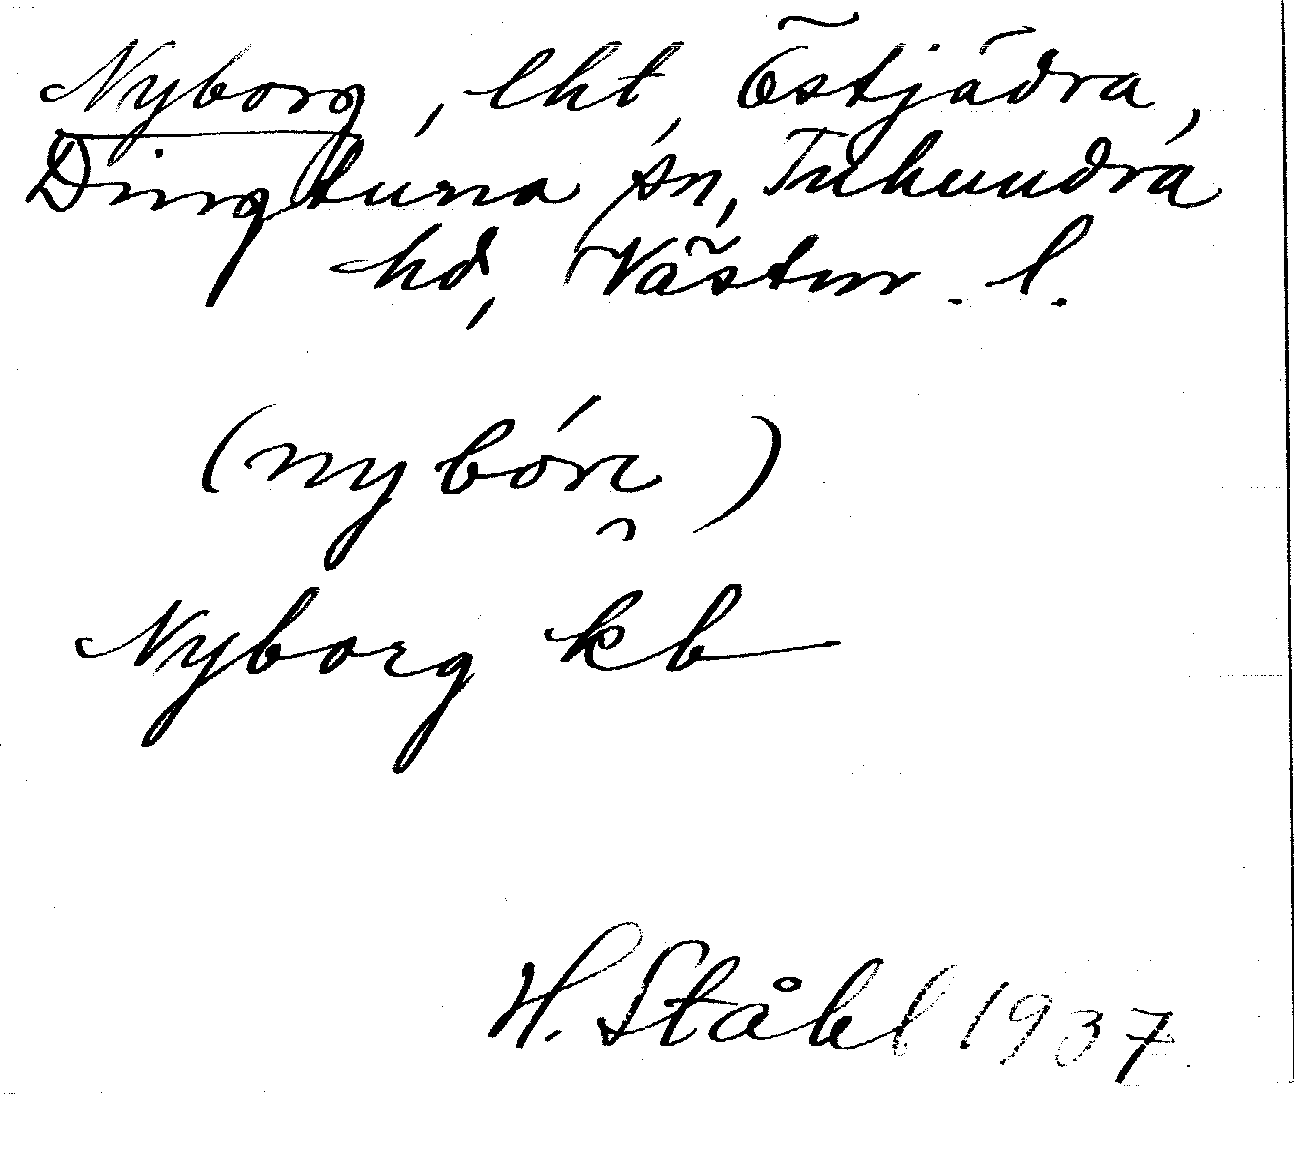 Nyborg, lht, Östjädra,
Dingtuna sn, Tuhundra
hd, Västm. l.
(nybórι)
Nyborg kb
H. Ståhl 1937